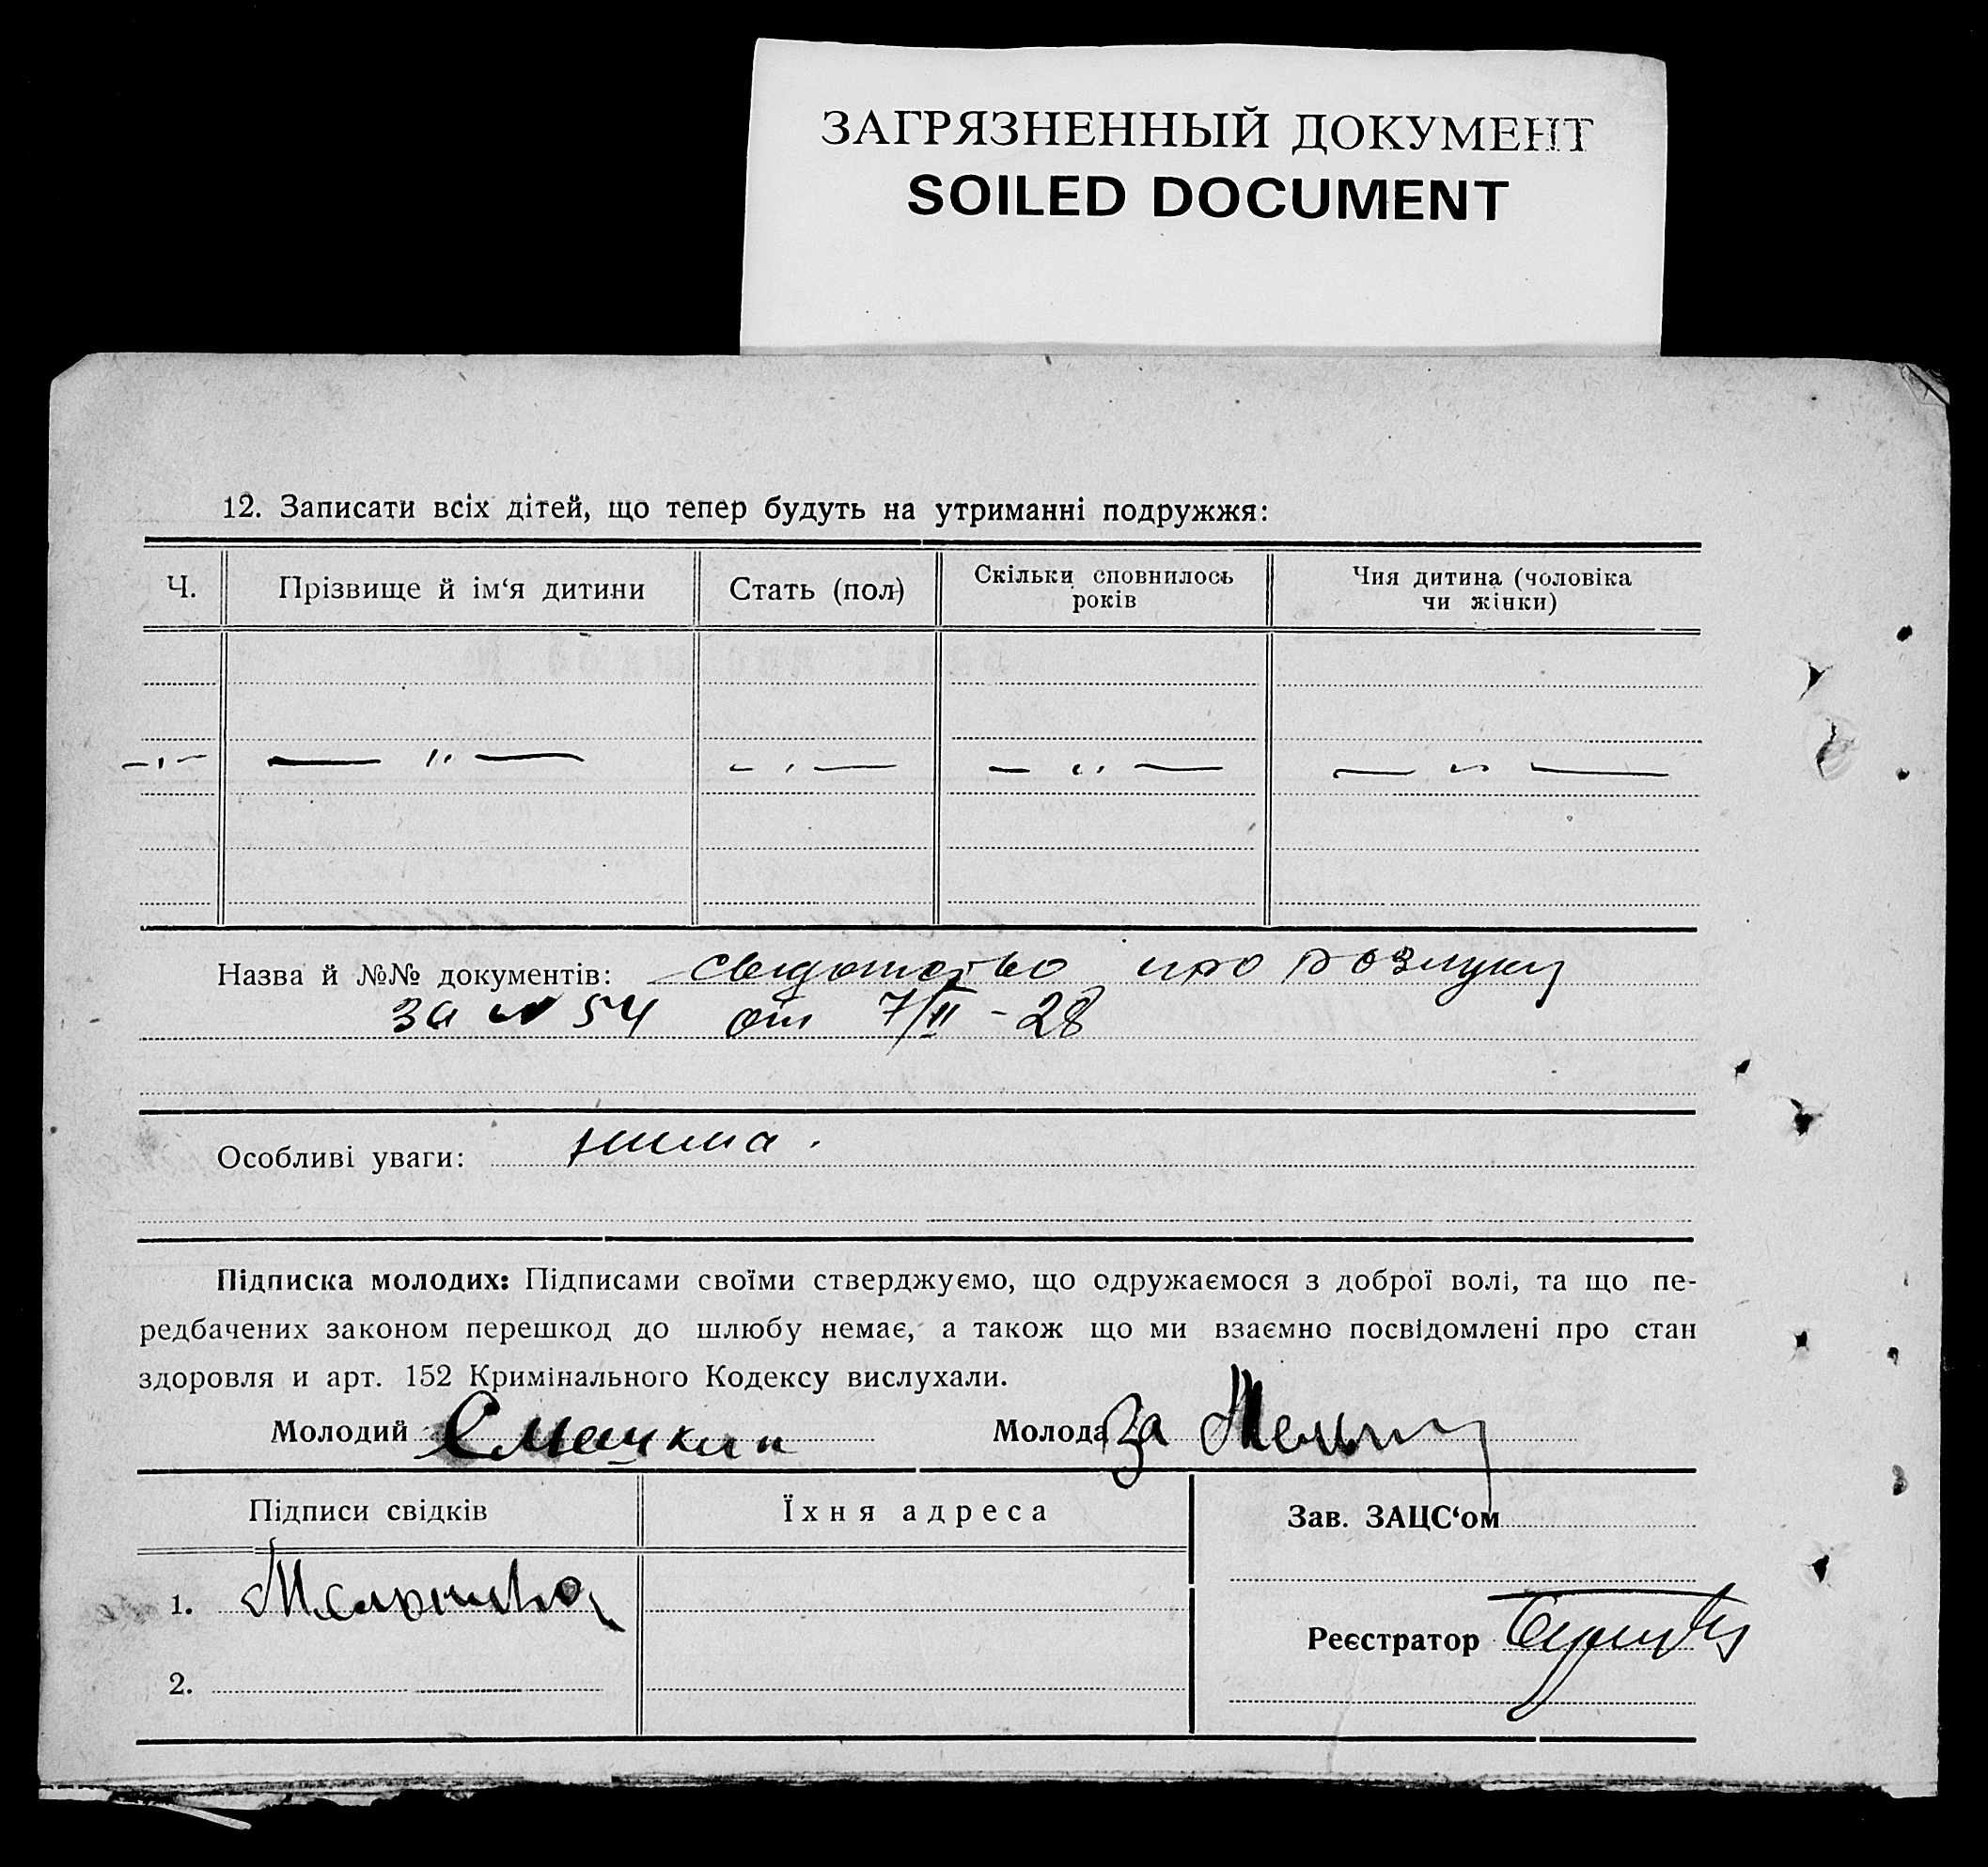 ЗАГРЯЗНЕННЫЙ ДОКУМЕНТ
SOILED DOCUMENT
12. Записати всіх дітей, що тепер будуть на утриманні подружжя:
Ч. Прізвище й ім‘я дитини Стать (пол) Скільки сповнилось років Чия дитина (чоловіка чи жінки)
— " — — " — — " — — " — — " —
Назва й №№ документів: свідотство про розлуку
за № 54 от 7/II - 28
Особливі уваги: нима.
Підписка молодих: Підписами своїми стверджуємо, що одружаємося з доброї волі, та що пе-
редбачених законом перешкод до шлюбу немає, а також що ми взаємно посвідомлені про стан
здоровля и арт. 152 Кримінального Кодексу вислухали.
Молодий Смашкин Молода За
Підписи свідків Їхня адреса Зав. ЗАЦС‘ом
1.
Реєстратор
2.